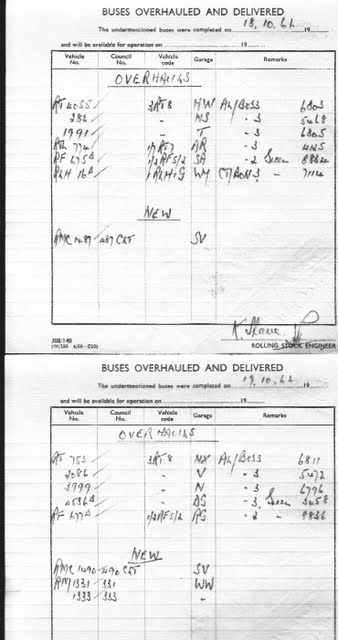 BUSES OVERHAULED AND DELIVERED
The undermentioned buses were completed on 18.10.62 19
and will be available for operation on 19
Vehicle No. Council No. Vehicle code Garage Remarks
OVERHAULS
RT 4055 3RT8 HW AL/BOSS 6803
282 - NS - 3 5468
1991 - T - 3 6805
RTL 774 1/7RT7 AR - 3
RF 675A 1/2RF5/2 SA - 2 Seen 8834
RLH 16A 1RLH1/G WY CT/BOSS 3 - 7114
NEW
RMC 1487 - 487 CLT SV
ROLLING STOCK ENGINEER
BUSES OVERHAULED AND DELIVERED
The undermentioned buses were completed on 19.10.62 19
and will be available for operation on 19
Vehicle No. Council No. Vehicle code Garage Remarks
OVERHAULS
RT 753 3RT8 NX AL/BOSS 6811
2086 - V - 3 5472
3999 - N - 3 6796
4536A - DS - 3 Seen 3458
RF 677A 1/2RF5/2 RG - 2 " 8836
NEW
RMC 1490 - 490 CLT SV
RM 1331 - 331 WW
1333 - 333 -